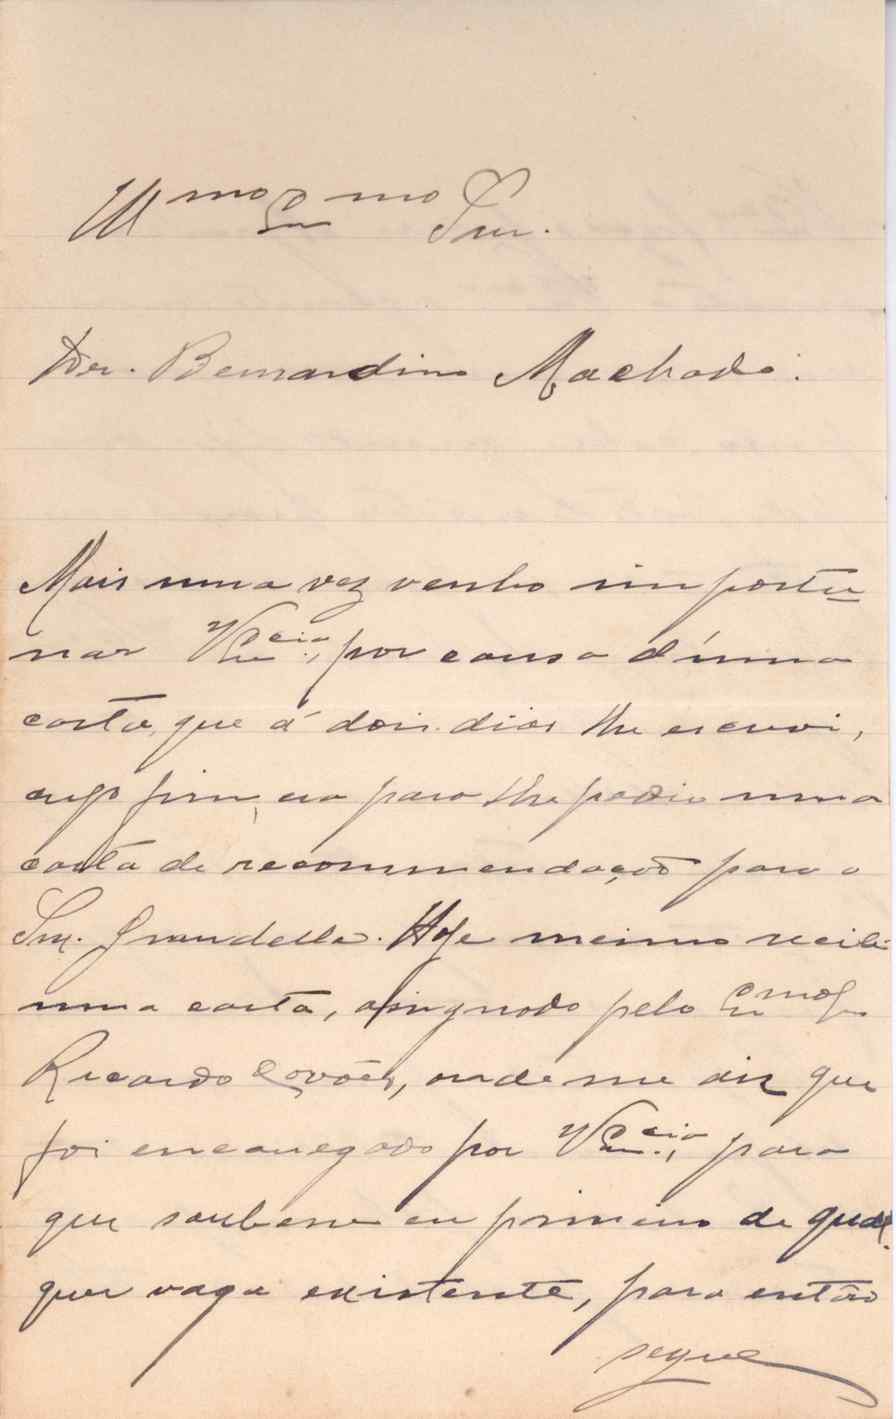 Ill.mo Ex.mo Snr.
Dr. Bernardino Machado.
Mais uma vez venho importu-
nar V. Ex.cia, por causa d'uma
carta, que á dois dias lhe escrevi,
cujo fim, era para lhe pedir uma
carta de recommendação para o
Snr. Grandella. Hoje mesmo recebi
uma carta, assignada pelo Ex.mo Sr.
Ricardo Covões, onde me diz que
foi encarregado por V. Ex.cia, para
que soubesse eu primeiro de qual-
quer vaga existente, para então
segue